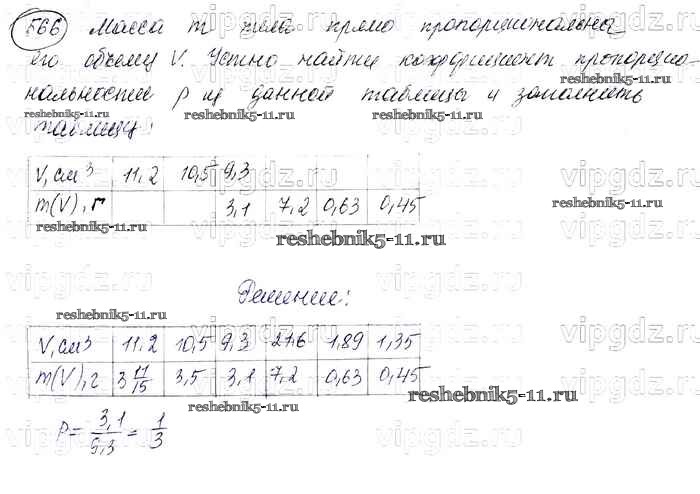 566 Масса m тела прямо пропорциональна
его объему V. Устно найти коэффициент пропорцио-
нальности ρ из данной таблицы и заполнить
таблицу:
V, см3 11,2 10,5 9,3
m(V), г 3,1 7,2 0,63 0,45
Решение:
V, см3 11,2 10,5 9,3 21,6 1,89 1,35
m(V), г 3 11/15 3,5 3,1 7,2 0,63 0,45
ρ = 3,1/9,3 = 1/3
reshebnik5-11.ru
reshebnik5-11.ru
reshebnik5-11.ru
reshebnik5-11.ru
reshebnik5-11.ru
reshebnik5-11.ru
reshebnik5-11.ru
reshebnik5-11.ru
vipgdz.ru
vipgdz.ru
vipgdz.ru